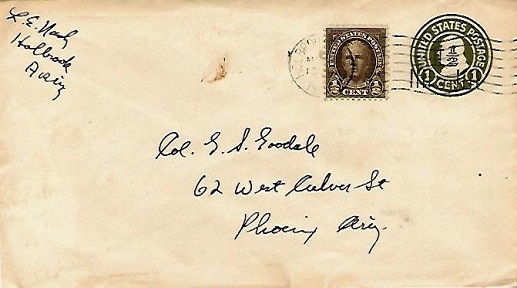 L. E. Nash
Holbrook
Ariz
UNITED STATES POSTAGE
1/2 CENT 1/2
UNITED STATES POSTAGE
1 1/2 1
CENT
Col. G. S. Goodale
62 West Culver St
Phoenix Ariz.